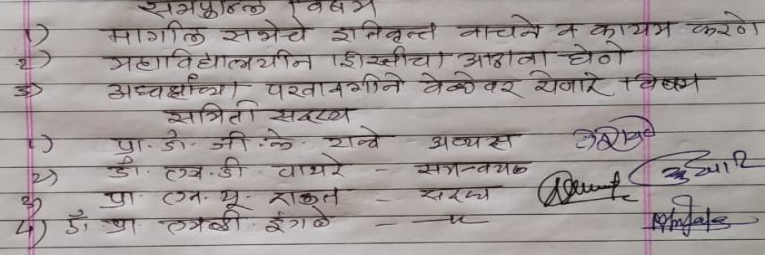 सभेपुढील विषय
1) मागील सभेचे इतिवृत्त वाचने व कायम करणे
2) महाविद्यालयीन शिस्तीचा आढावा घेणे
3) अध्यक्षांच्या परवानगीने वेळेवर येणारे विषय
समिती सदस्य
1) प्रा. डॉ. जी. के. राव्ते अध्यक्ष
2) डॉ. एच. डी. वाघरे - समन्वयक
3) प्रा. एन. यू. राऊत - सदस्य
4) डॉ. प्रा. इंगळे - "